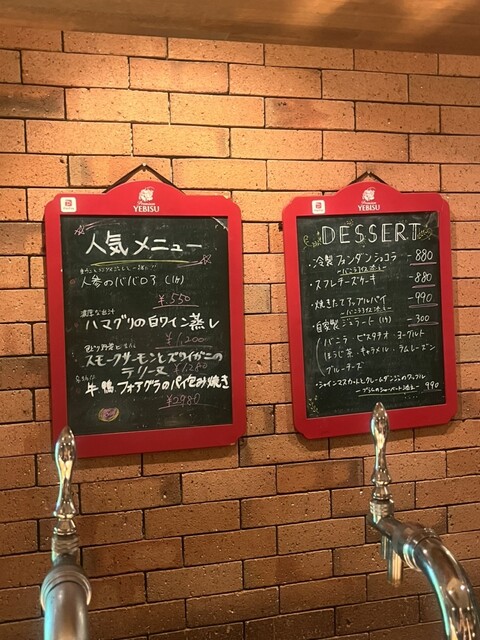 YEBISU
人気メニュー
人参のババロア (1ケ)
¥550
濃厚な出汁
ハマグリの白ワイン蒸し
¥1,200
スモークサーモンとズワイガニの
テリーヌ ¥1,280
牛鴨フォアグラのパイ包み焼き
¥2980
YEBISU
DESSERT
・冷製フォンダンショコラ -880
-バニラアイス添え-
・スフレチーズケーキ -880
・焼きたてアップルパイ -990
-バニラアイス添え-
・自家製ジェラート(1ケ) -300
バニラ・ピスタチオ・ヨーグルト
ほうじ茶・キャラメル・ラムレーズン
ブルーチーズ
・シャインマスカットとクレームダンジュのワッフル
990